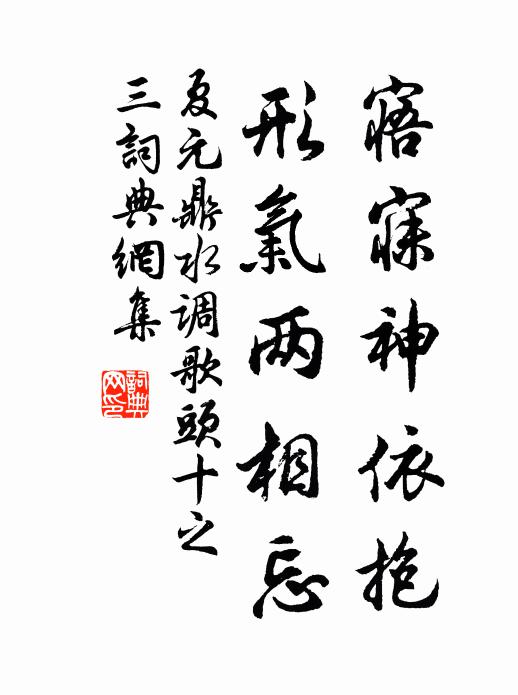 寤寐神依抱
形氣两相忘
夏元鼎水调歌頭十之
三詞典網集
詞典
网印